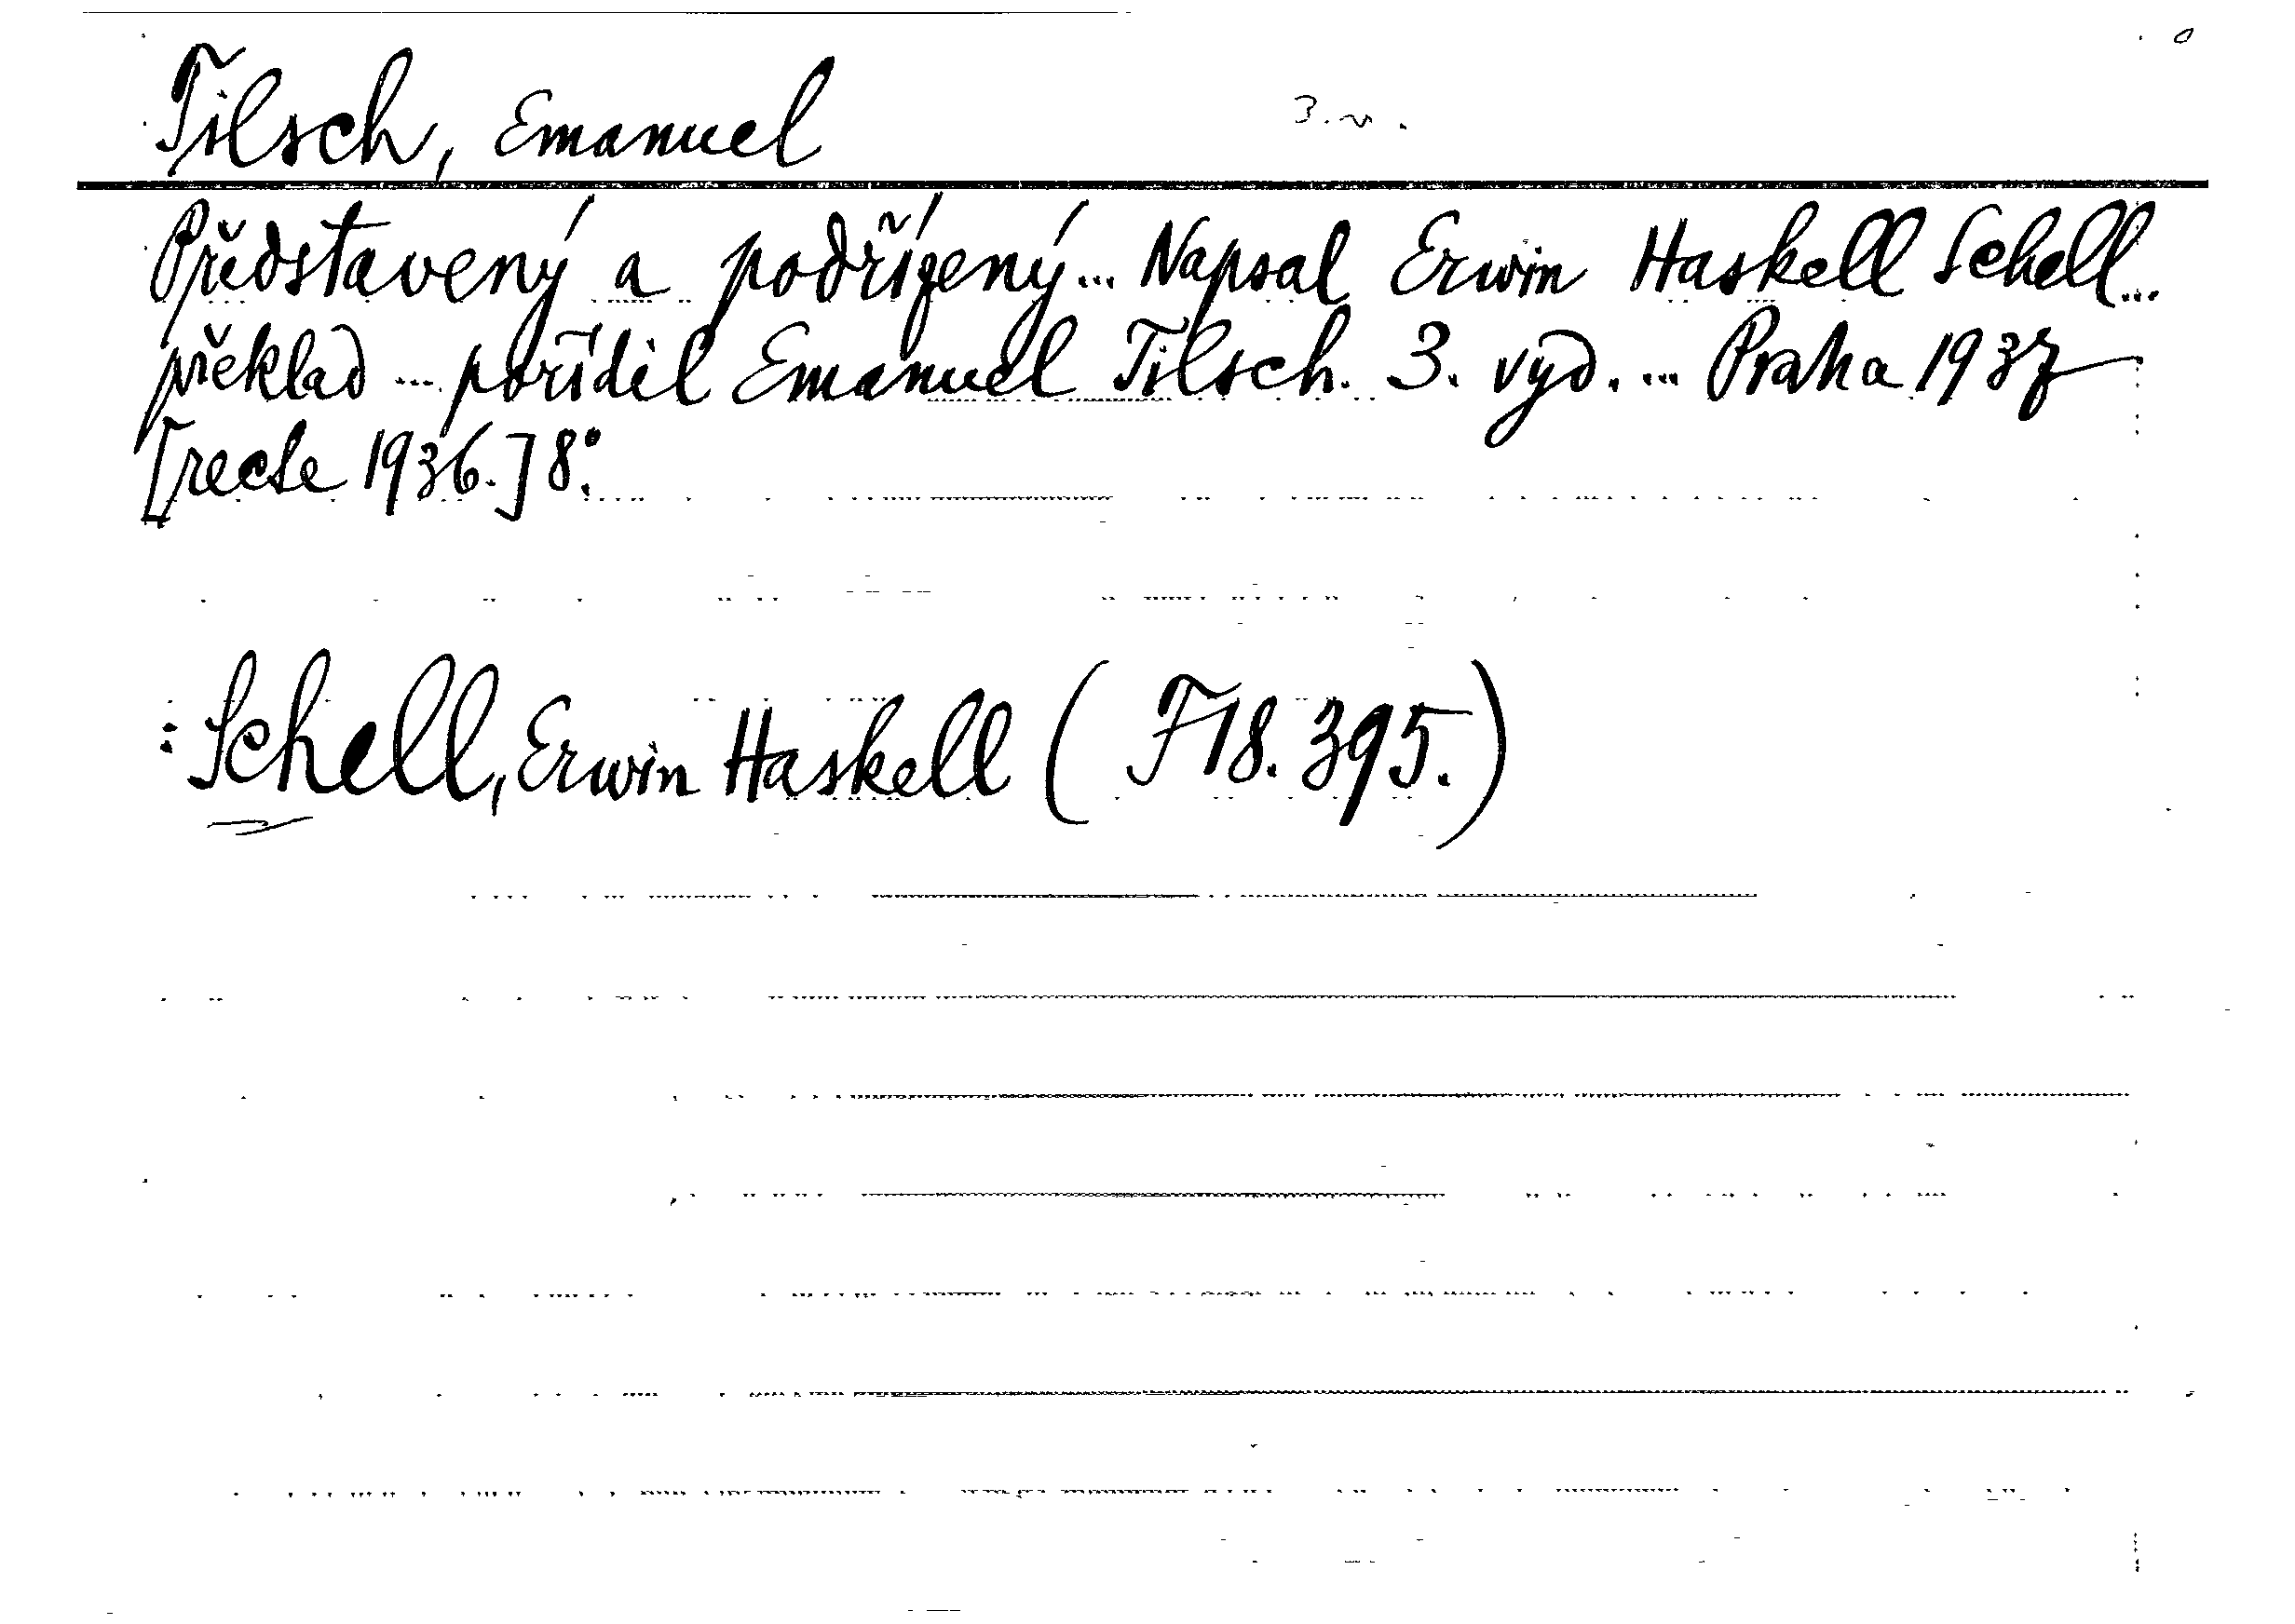 Tilsch, Emanuel
Představený a podřízený... Napsal Erwin Haskell Schell...
překlad ... pořídil Emanuel Tilsch. 3. vyd. ... Praha 1937
[recte 1936.] 8°.
: Schell, Erwin Haskell ( F 18. 395.)